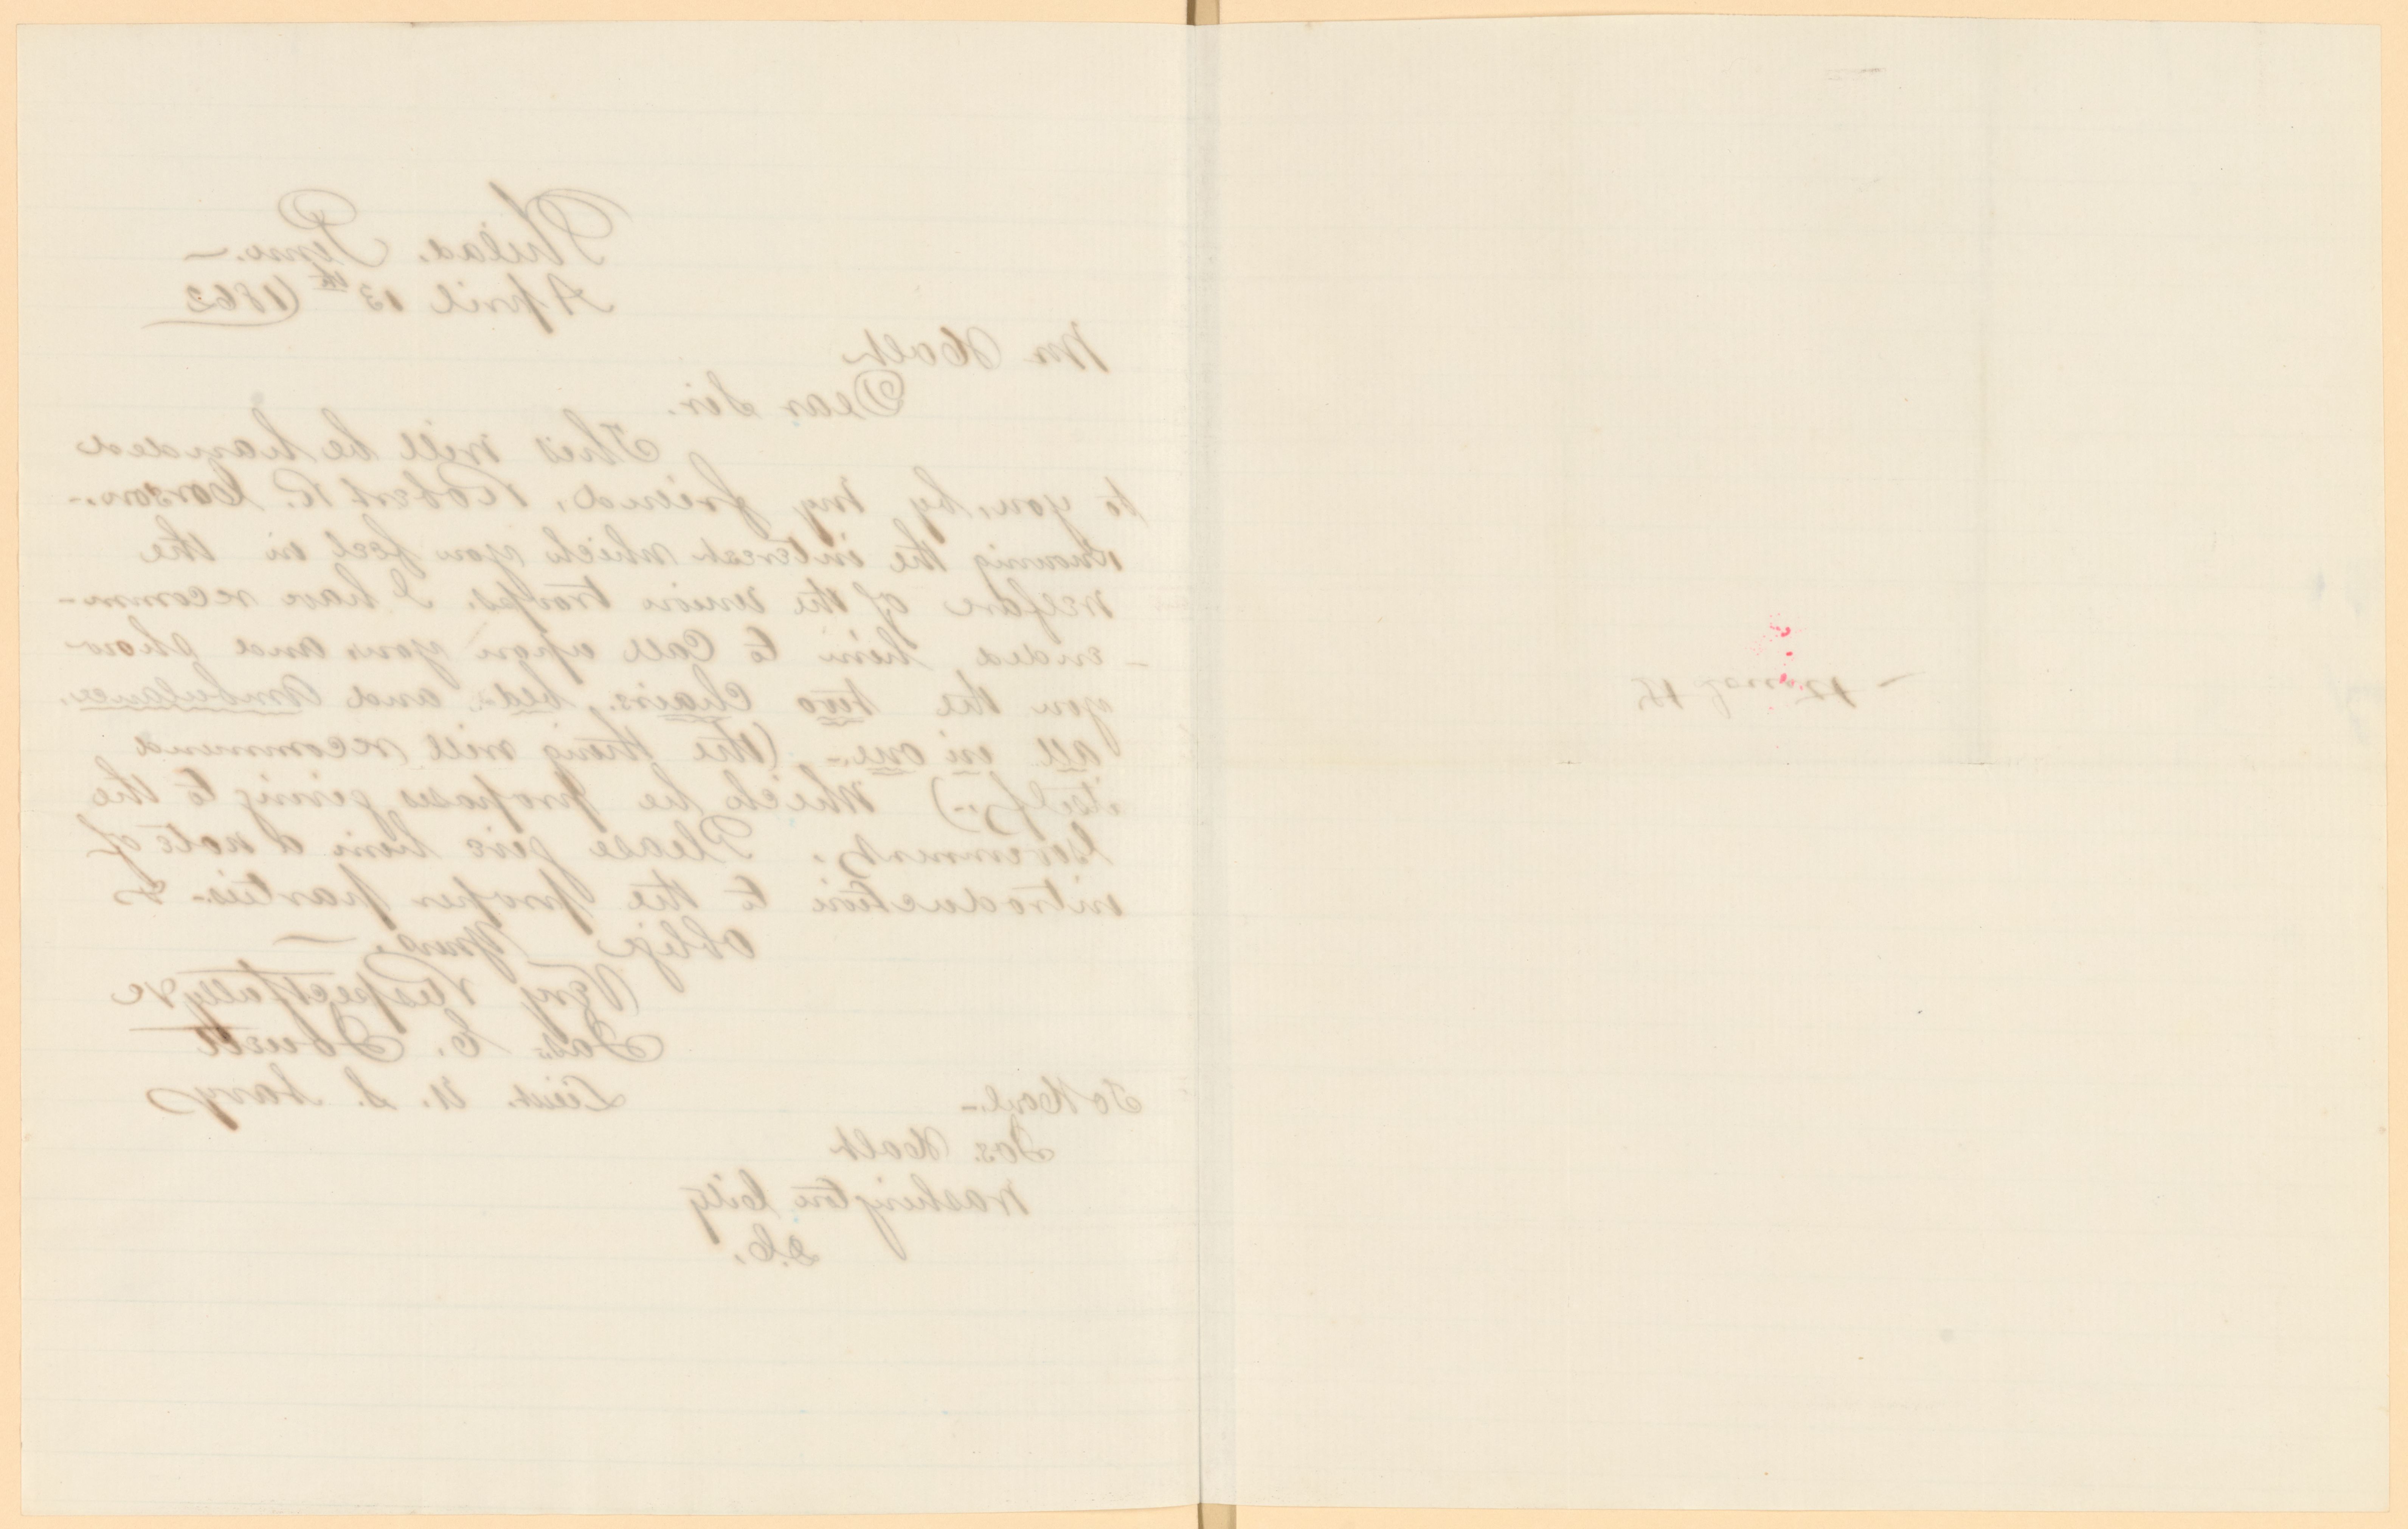 Philad. Penn.—
April 13th (1862
Mr Holt
Dear Sir.
This will be handed
to you, by my friend, Robert R. Corson.-
Knowing the interest which you feel in the
welfare of the Union troops. I have recomm-
-ended him to call upon you and show
you the two chairs, bed- and ambulance,
all in one.- (the thing will recommend
itself.-) which he proposes giving to the
Government. Please give him a note of
introduction to the proper parties.- &
oblige Yours.
Very Respectfully &c
Jas. C.
Lieut. U. S. Navy
To Honl.-
Jos. Holt
Washington City
D.C.